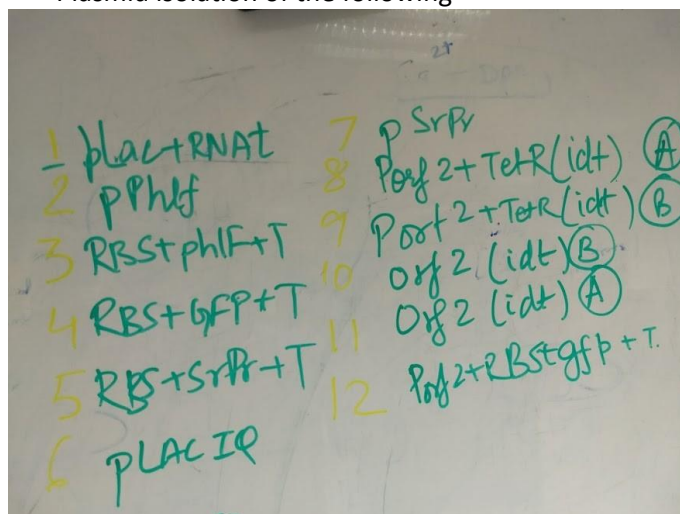 Plasmid isolation of the following
2+
1 pLac+RNAt
2 pPhlf
3 RBS+phlF+T
4 RBS+GFP+T
5 RBS+SrPr+T
6 pLAC IQ
7 pSrPr
8 Porf 2+TetR(idt) A
9 Porf 2+TetR(idt) B
10 Orf 2 (idt) B
11 Orf 2 (idt) A
12 Porf 2+RBS+gfp+T.